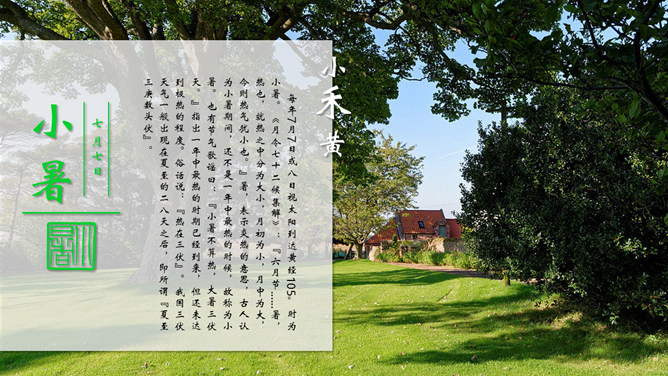 小禾黄
每年7月7日或八日视太阳到达黄经105°时为
小暑。《月令七十二候集解》：『六月节……暑，
热也，就热之中分为大小，月初为小，月中为大，
今则热气犹小也。』暑，表示炎热的意思，古人认
为小暑期间，还不是一年中最热的时候，故称为小
暑。也有节气歌谣曰：『小暑不算热，大暑三伏
天。』指出一年中最热的时期已经到来，但还未达
到极热的程度。俗话说：『热在三伏』。我国三伏
天气一般出现在夏至的二八天之后，即所谓『夏至
三庚数头伏』。
七月七日
小暑
小暑